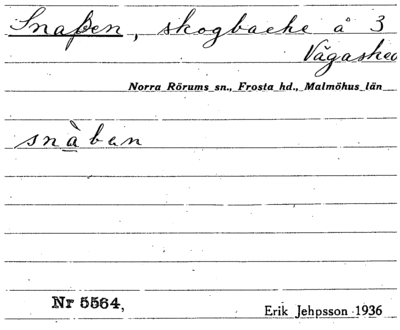 Snaben, skogbacke å 3
Vägasked
Norra Rörums sn., Frosta hd., Malmöhus län
snàban
Nr 5564,
Erik Jehpsson 1936